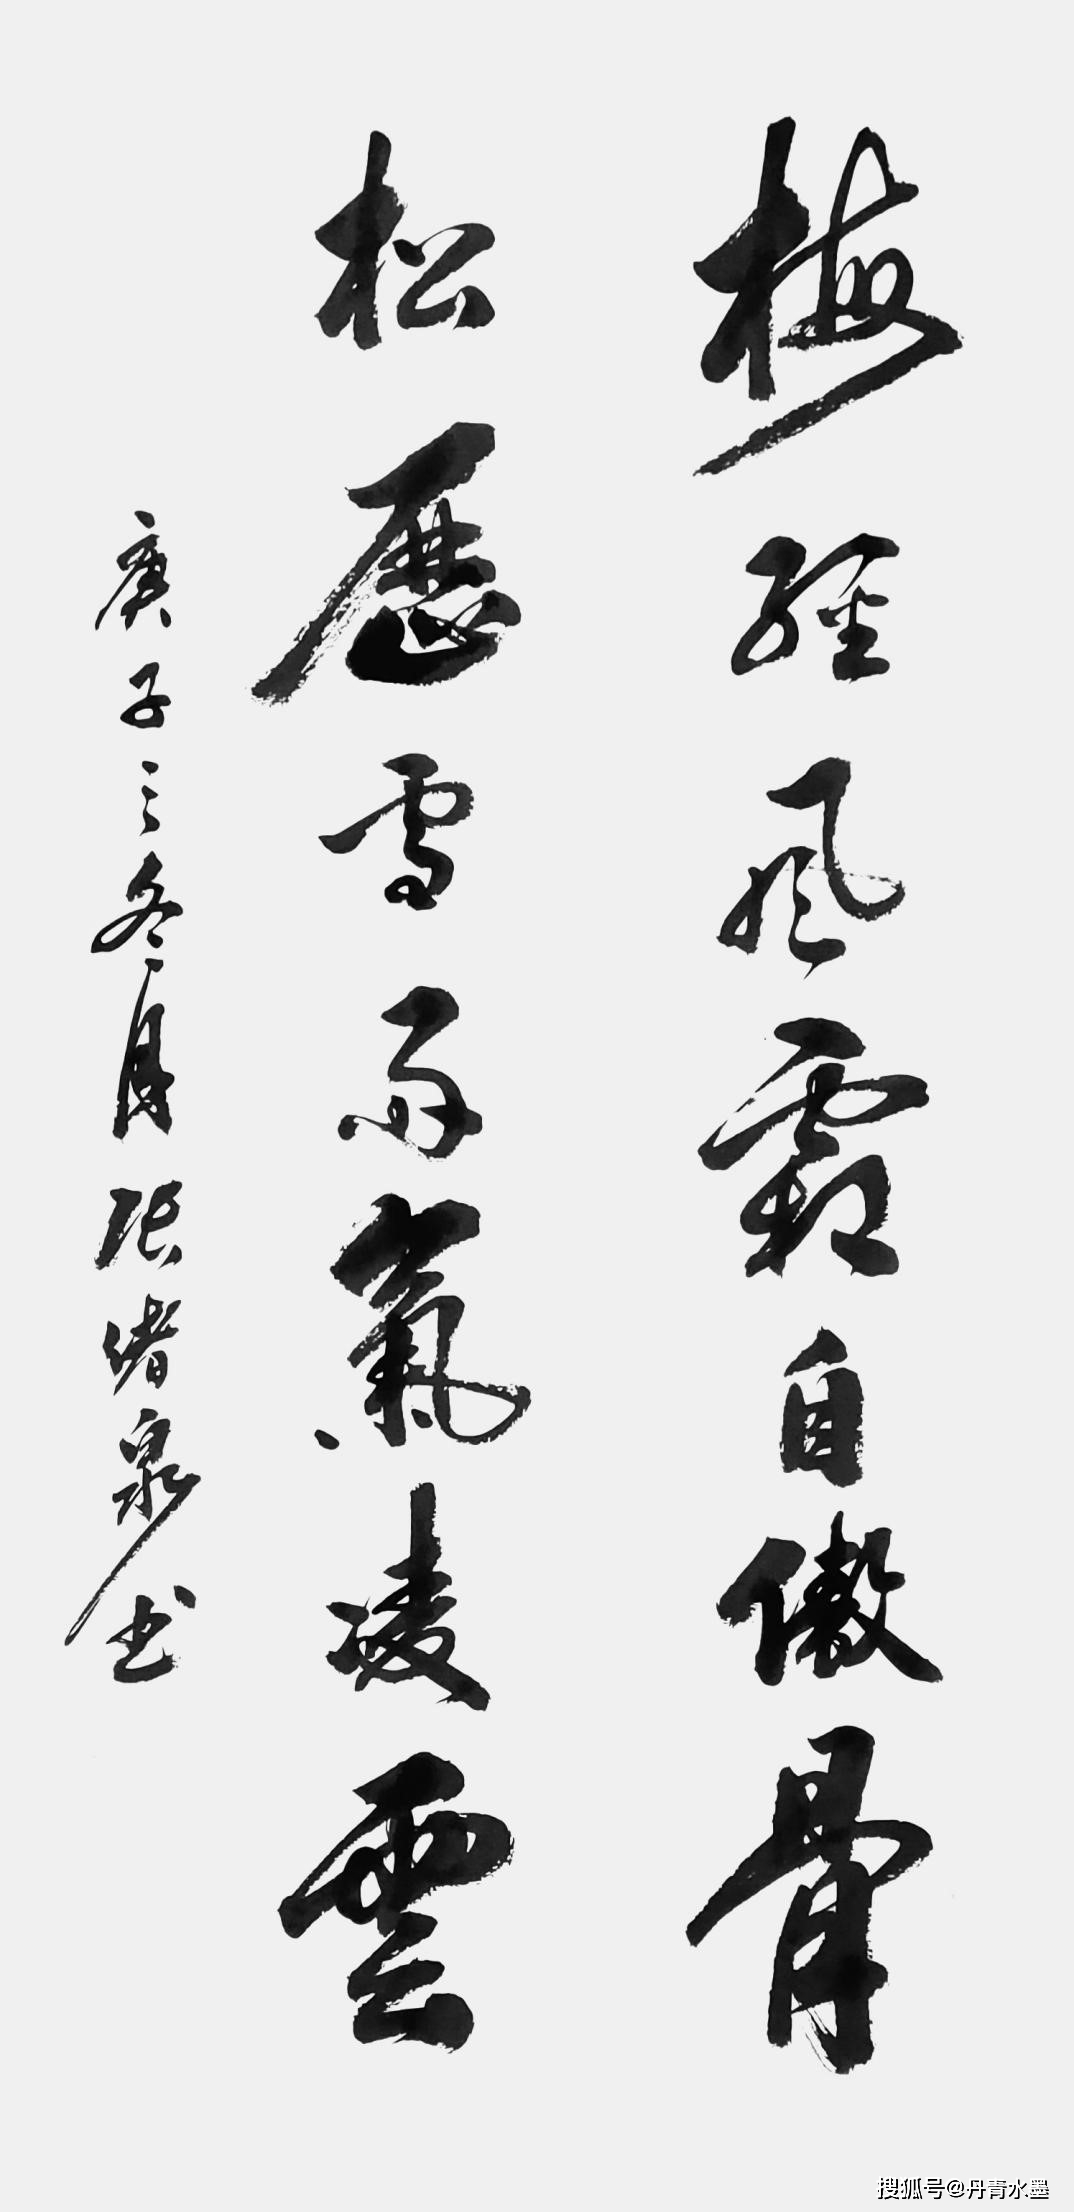 梅經風霜自傲骨
松歷雪雨氣凌雲
庚子之冬月張緒泉书
搜狐号@丹青水墨